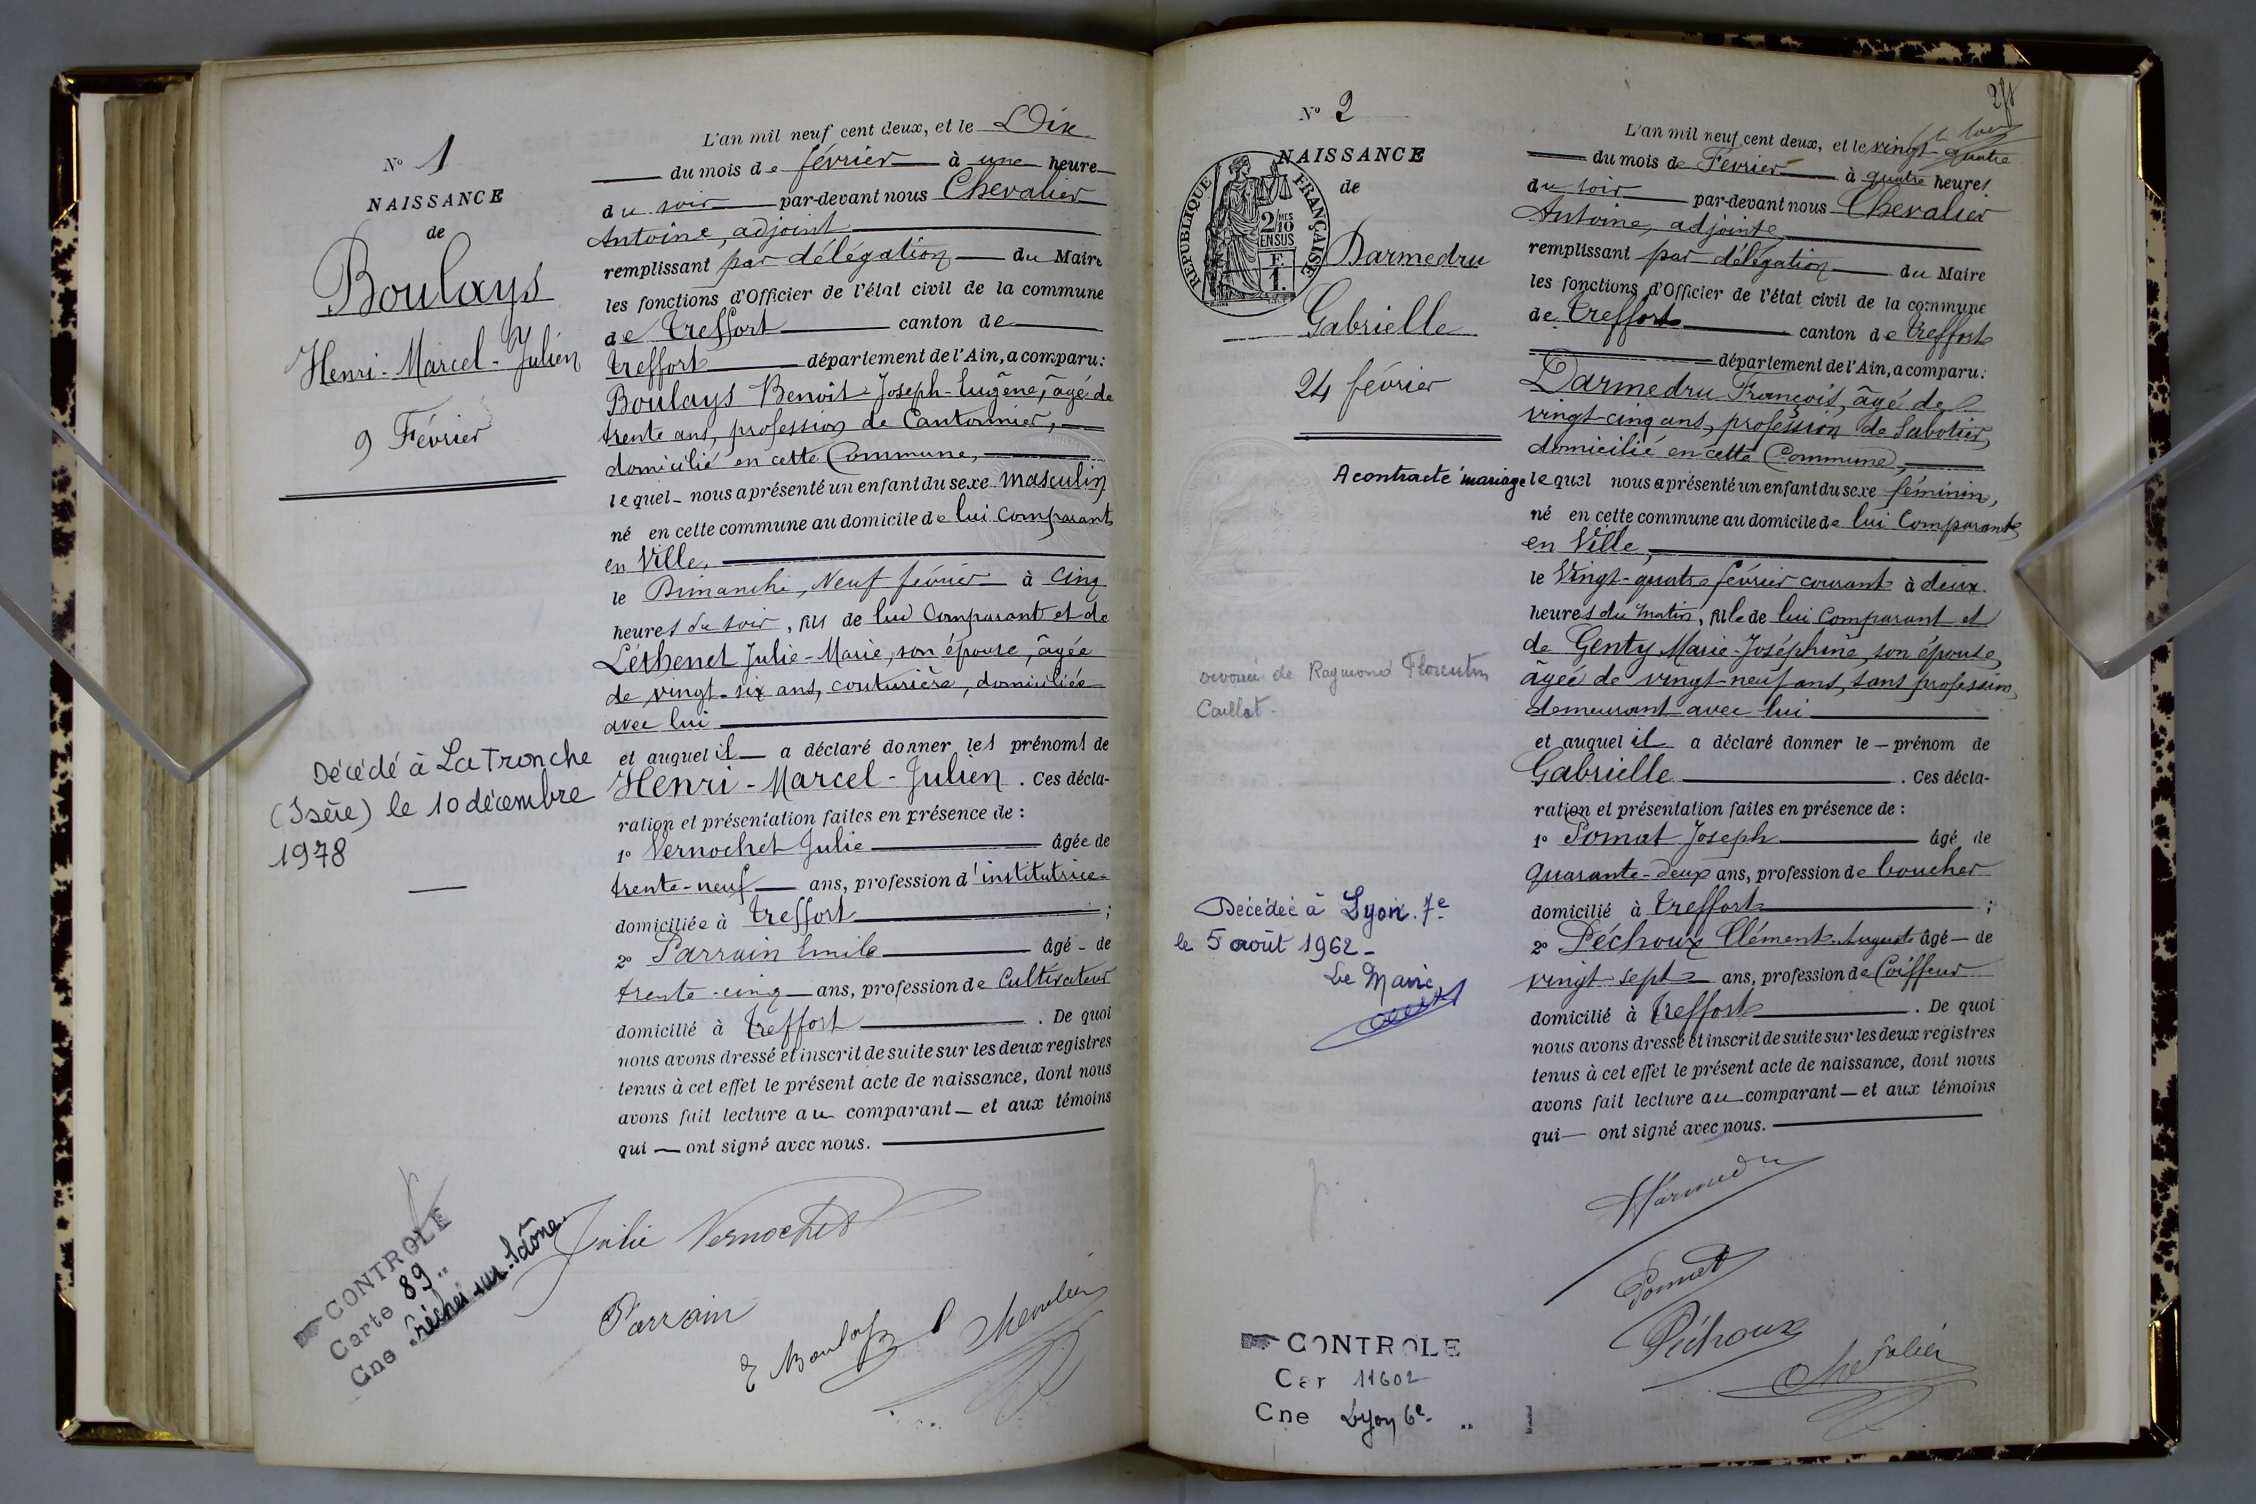 N° 1
NAISSANCE
de
Boulays
Henri-Marcel-Julien
9 Février
Décédé à La Tronche
(Isère) le 10 décembre
1978
CONTROLE
Carte 89
Cne sur-Saône
L'an mil neuf cent deux, et le Dix
du mois de février à une heure
du soir par-devant nous Chevalier
Antoine, adjoint
remplissant par délégation du Maire
les fonctions d'Officier de l'état civil de la commune
de Treffort canton de
Treffort département de l'Ain, a comparu:
Boulays Benoit-Joseph-Eugène, âgé de
trente ans, profession de Cantonnier,
domicilié en cette Commune,
lequel nous a présenté un enfant du sexe masculin
né en cette commune au domicile de lui comparant
en Ville,
le Dimanche, Neuf février à cinq
heures du soir, fils de lui Comparant et de
Léthenet Julie-Marie, son épouse, âgée
de vingt-six ans, couturière, domiciliée
avec lui
et auquel il a déclaré donner les prénoms de
Henri-Marcel-Julien. Ces décla-
ration et présentation faites en présence de :
1° Vernochet Julie âgée de
trente-neuf ans, profession d'institutrice
domiciliée à Treffort ;
2° Parrain Emile âgé de
trente-cinq ans, profession de Cultivateur
domicilié à Treffort. De quoi
nous avons dressé et inscrit de suite sur les deux registres
tenus à cet effet le présent acte de naissance, dont nous
avons fait lecture au comparant et aux témoins
qui ont signé avec nous.
Julie Vernochet
Parrain
E Boulays
Chevalier
N° 2
NAISSANCE
de
RÉPUBLIQUE FRANÇAISE
2/10MES
EN SUS
F.
1.
Darmedru
Gabrielle
24 février
A contracté mariage
divorcée de Raymond Florentin
Caillat-
Décédée à Lyon 7e
le 5 août 1962-
Le Maire
CONTROLE
Car 11602
Cne Lyon 6e
L'an mil neuf cent deux, et le vingt-quatre
du mois de Février à quatre heures
du soir par-devant nous Chevalier
Antoine, adjoint
remplissant par délégation du Maire
les fonctions d'Officier de l'état civil de la commune
de Treffort canton de Treffort
département de l'Ain, a comparu:
Darmedru François, âgé de
vingt-cinq ans, profession de Sabotier,
domicilié en cette Commune,
lequel nous a présenté un enfant du sexe féminin,
né en cette commune au domicile de lui Comparant
en Ville,
le Vingt-quatre février courant à deux
heures du matin, fille de lui Comparant et
de Genty Marie-Joséphine, son épouse,
âgée de vingt-neuf ans, sans profession,
demeurant avec lui
et auquel il a déclaré donner le prénom de
Gabrielle. Ces décla-
ration et présentation faites en présence de :
1° Pomat Joseph âgé de
quarante-deux ans, profession de boucher
domicilié à Treffort ;
2° Péchoux Clément-Auguste âgé de
vingt-sept ans, profession de Coiffeur
domicilié à Treffort. De quoi
nous avons dressé et inscrit de suite sur les deux registres
tenus à cet effet le présent acte de naissance, dont nous
avons fait lecture au comparant et aux témoins
qui ont signé avec nous.
Darmedru
Pomat
Péchoux
Chevalier